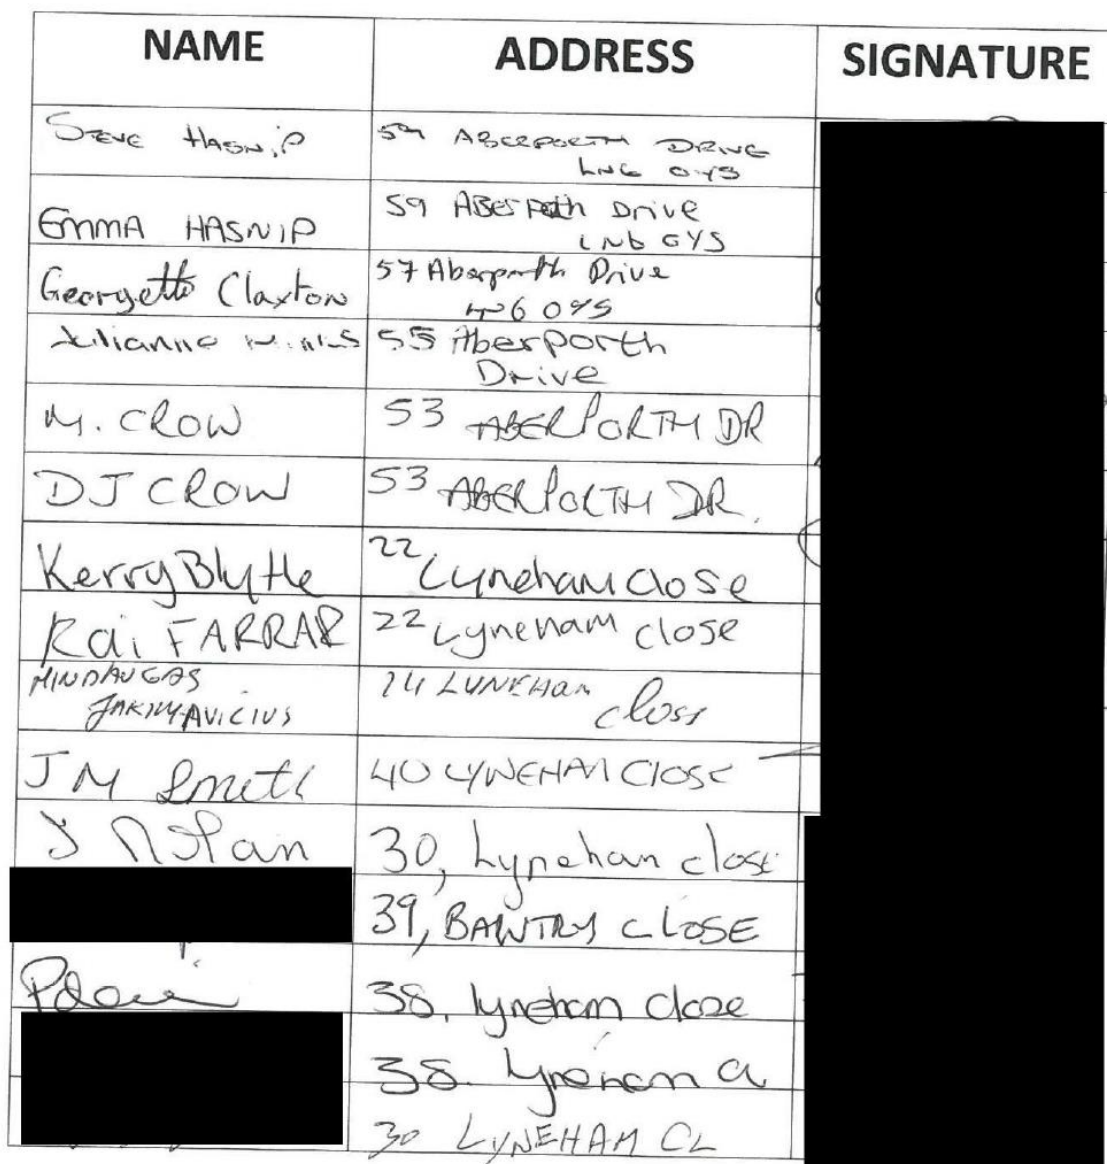 NAME ADDRESS SIGNATURE
STEVE HASNIP 59 ABERPORTH DRIVE
LN6 0YS
EMMA HASNIP 59 ABERPORTH Drive
LN6 0YS
Georgette Claxton 57 Aberporth Drive
LN6 0YS
Julianne 55 Aberporth
Drive
M. CROW 53 ABERPORTH DR
DJ CROW 53 ABERPORTH DR.
Kerry Blythe 22 Lyneham Close
Kai FARRAR 22 Lyneham close
MINDAUGAS LYNEHAM close
JAKIMAVICIUS
J M Smith 40 LYNEHAM Close
J 30, Lyneham close
39, BANTRY CLOSE
38, lyneham close
38. Lyneham Cl
30 LYNEHAM CL